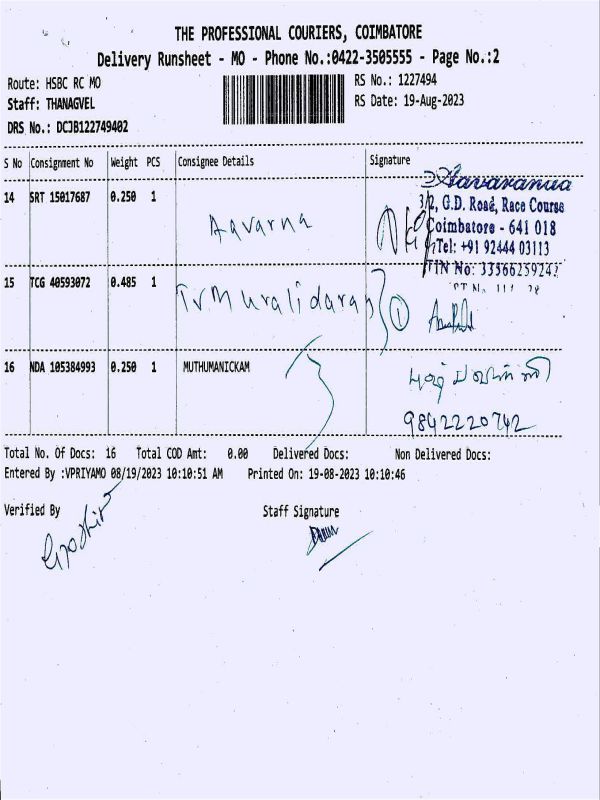 THE PROFESSIONAL COURIERS, COIMBATORE
Delivery Runsheet - MO - Phone No.:0422-3505555 - Page No.:2
Route: HSBC RC MO
RS No.: 1227494
Staff: THANAGVEL
RS Date: 19-Aug-2023
DRS No.: DCJB122749402
S No Consignment No Weight PCS Consignee Details Signature
14 SRT 15017687 0.250 1 Aavarna
3/2, G.D. Road, Race Course
Coimbatore - 641 018
Tel: +91 92444 03113
TIN No: 33566259242
15 TCG 40593072 0.485 1 TVMuralidaran 1
16 NDA 105384993 0.250 1 MUTHUMANICKAM
9842220742
Total No. Of Docs: 16 Total COD Amt: 0.00 Delivered Docs: Non Delivered Docs:
Entered By :VPRIYAMO 08/19/2023 10:10:51 AM Printed On: 19-08-2023 10:10:46
Verified By Staff Signature